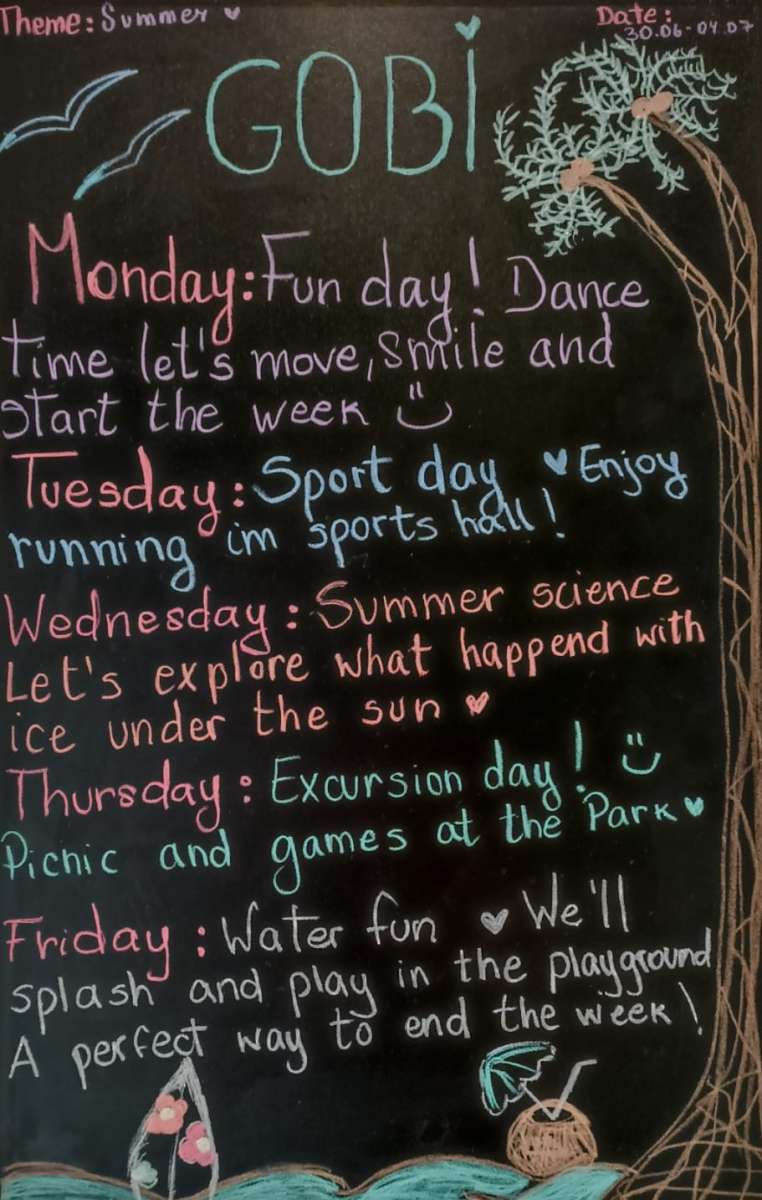 Theme: Summer ♥
Date:
30.06-04.07
GOBi
Monday: Fun day! Dance
time let's move, smile and
start the week
Tuesday: Sport day ♥ Enjoy
running im sports hall!
Wednesday: Summer science
Let's explore what happend with
ice under the sun ♥
Thursday: Excursion day!
Picnic and games at the Park ♥
Friday: Water fun ♥ We'll
splash and play in the playground
A perfect way to end the week!